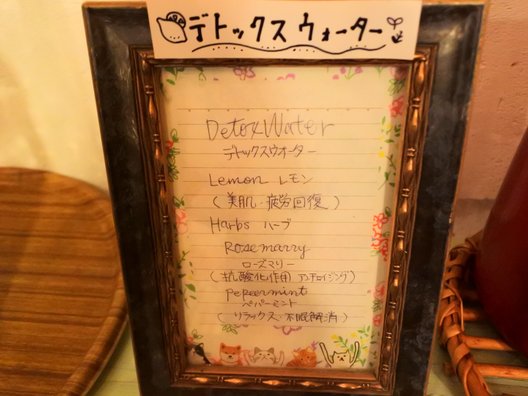 デトックスウォーター
Detox Water
デトックスウオーター
Lemon レモン
(美肌・疲労回復)
Harbs ハーブ
Rosemarry
ローズマリー
(抗酸化作用 アンチエイジング)
Pepermint
ペパーミント
(リラックス・不眠解消)